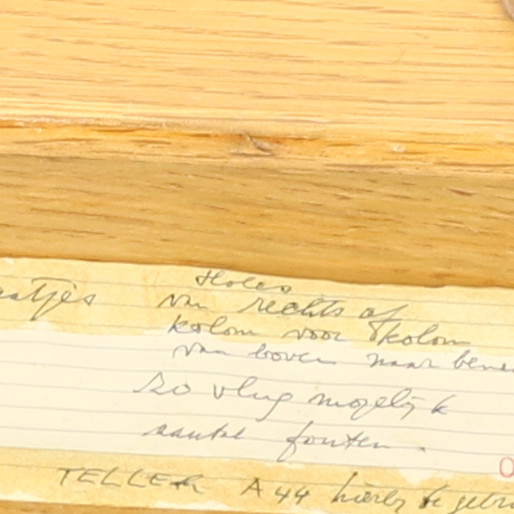 Holes
van rechts af
kolom voor kolom
van boven naar bene
zo vlug mogelijk
aantal fouten.
0
TELLER A44 hierbij te gebru